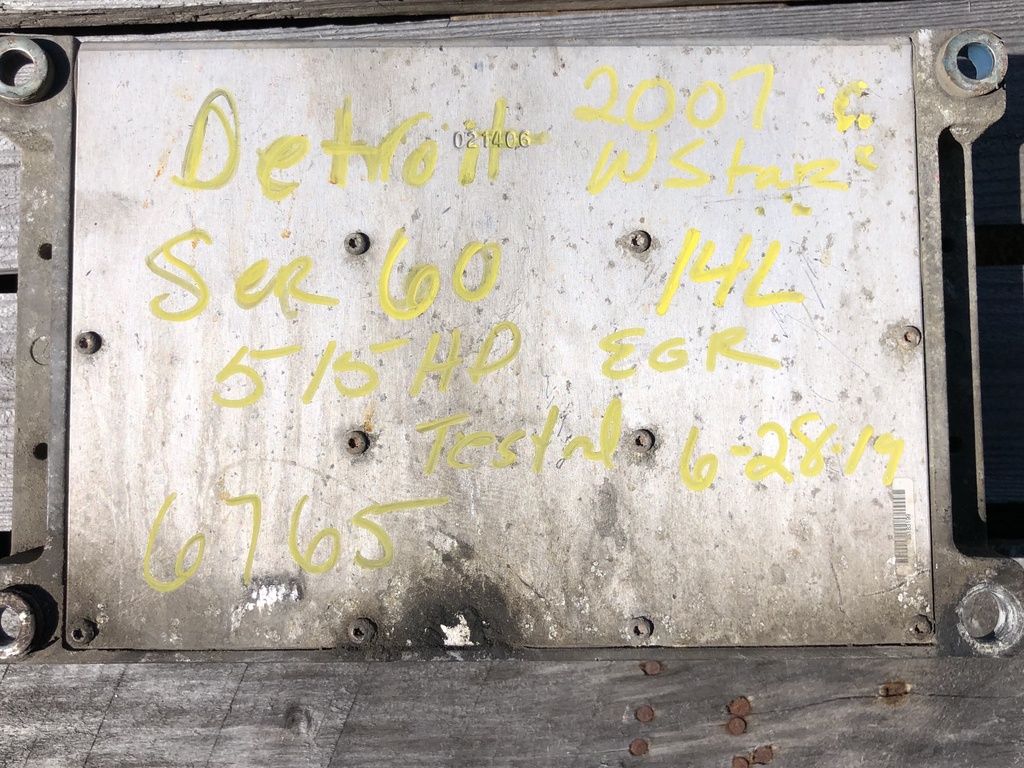 Detroit
021406
2007
W Star
Ser 60
14L
515 HP
EGR
Tested
6-28-19
6765